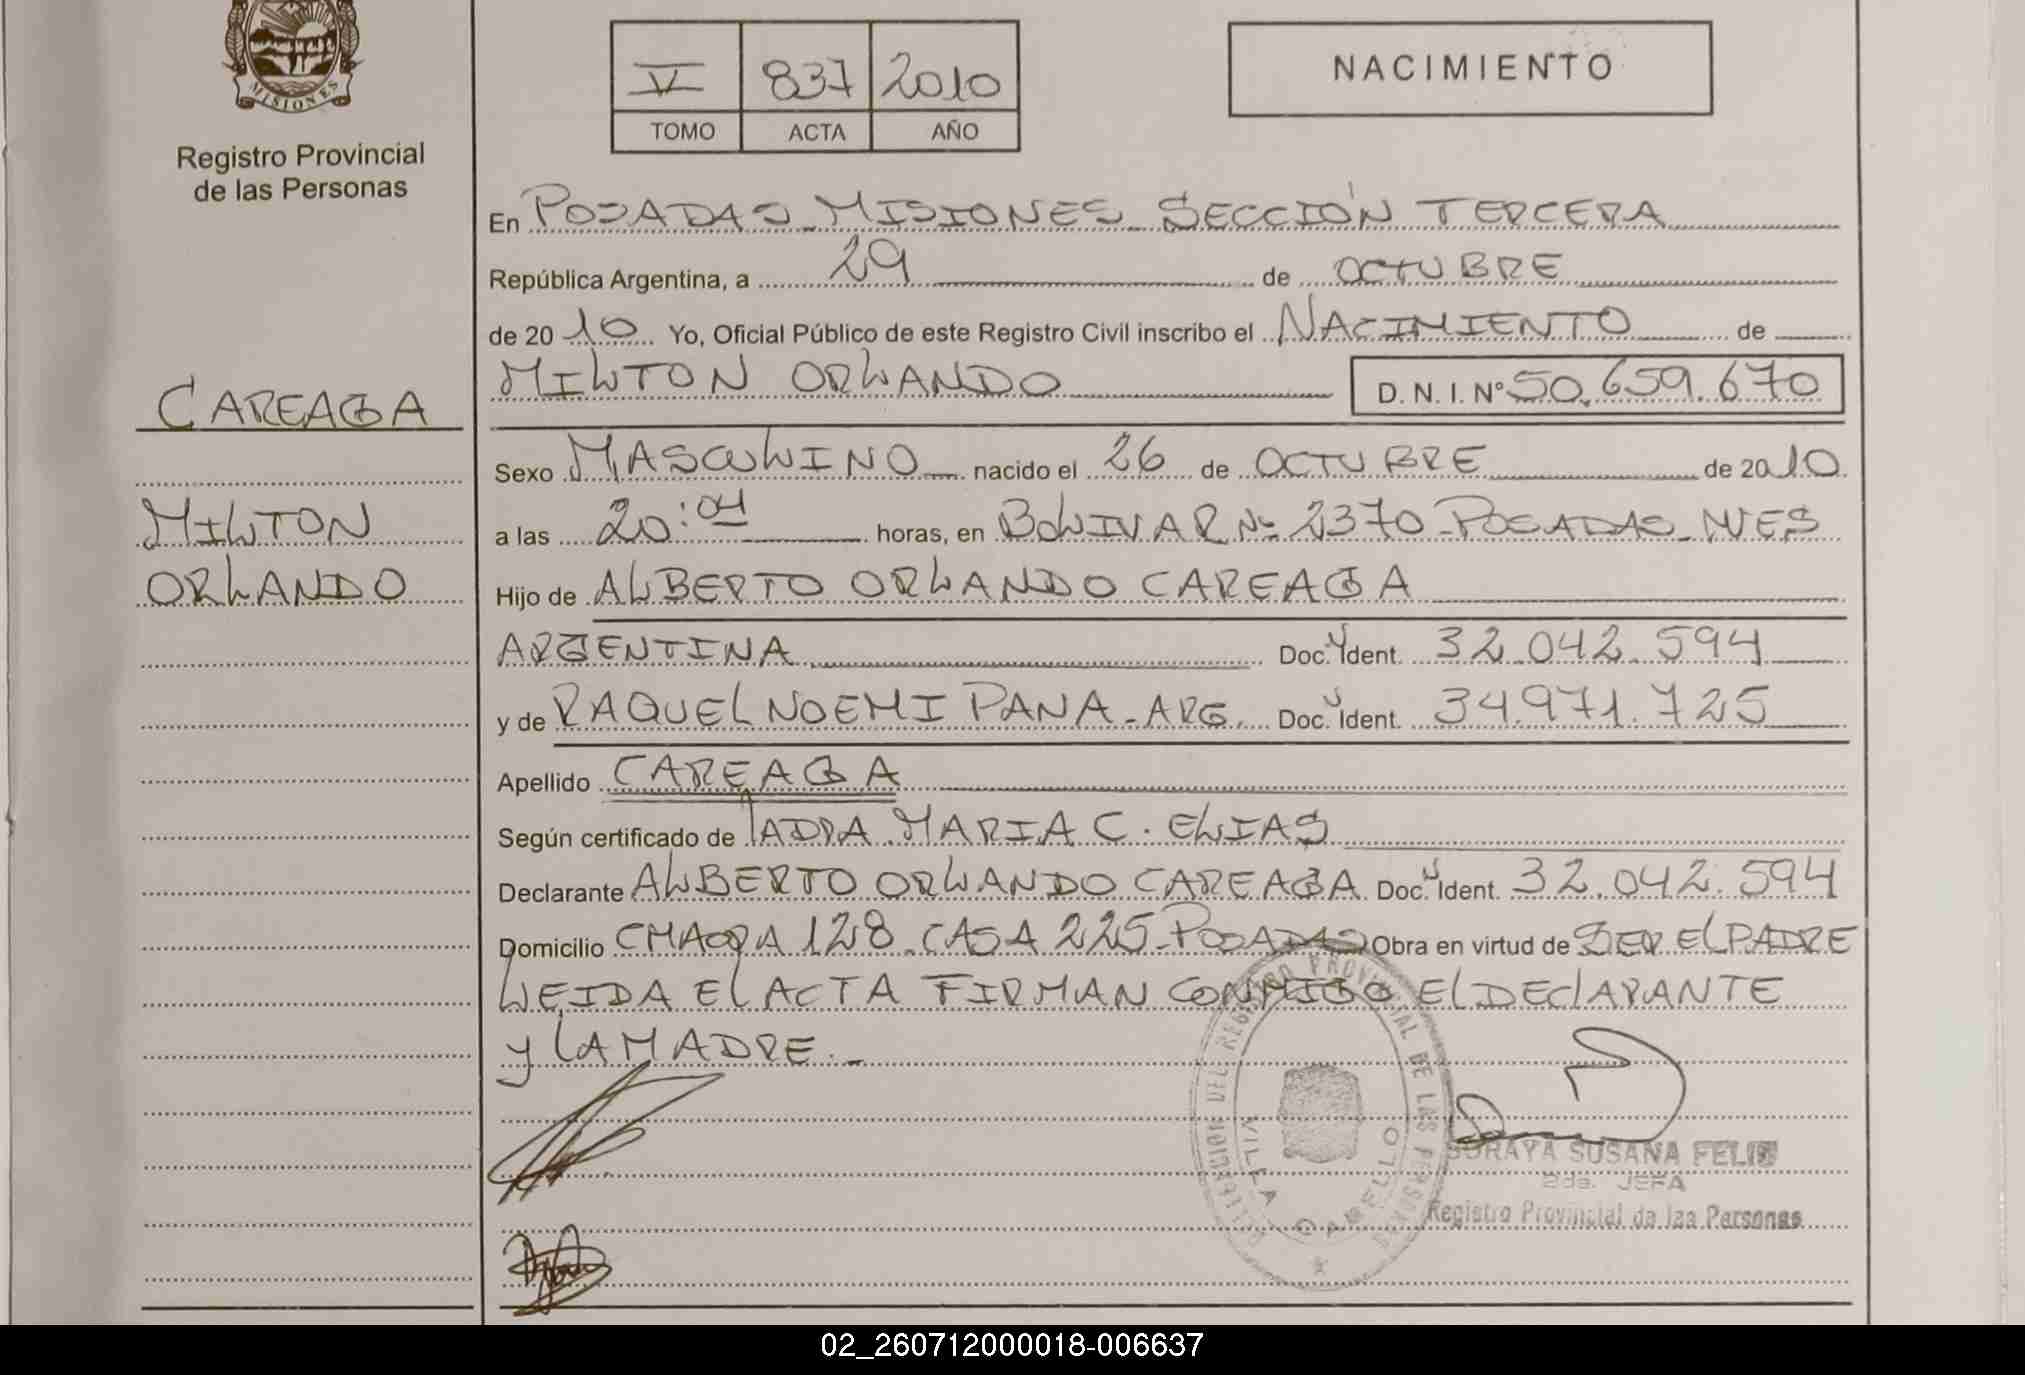 MISIONES
Registro Provincial
de las Personas
V 837 2010
TOMO ACTA AÑO
NACIMIENTO
En POSADAS - MISIONES - SECCIÓN TERCERA
República Argentina, a 29 de OCTUBRE
de 2010 Yo, Oficial Público de este Registro Civil inscribo el NACIMIENTO de
MILTON ORLANDO D. N. I. Nº 50.659.670
CAREAGA
MILTON
ORLANDO
Sexo MASCULINO nacido el 26 de OCTUBRE de 2010
a las 20:04 horas, en BOLIVAR Nº 2370 - POSADAS - MNES
Hijo de ALBERTO ORLANDO CAREAGA
ARGENTINA Doc. Ident. 32.042.594
y de RAQUEL NOEMI PANA - ARG. Doc. Ident. 34.971.725
Apellido CAREAGA
Según certificado de MARIA C. ELIAS
Declarante ALBERTO ORLANDO CAREAGA Doc. Ident. 32.042.594
Domicilio CHACRA 128 - CASA 225 - POSADAS Obra en virtud de SER EL PADRE
LEIDA EL ACTA FIRMAN CONMIGO EL DECLARANTE
y LA MADRE. -
DELEGACION DEL REGISTRO PROVINCIAL DE LAS PERSONAS
VILLA CABELLO
SORAYA SUSANA
2da. JEFA
Registro Provincial de las Personas
02_260712000018-006637